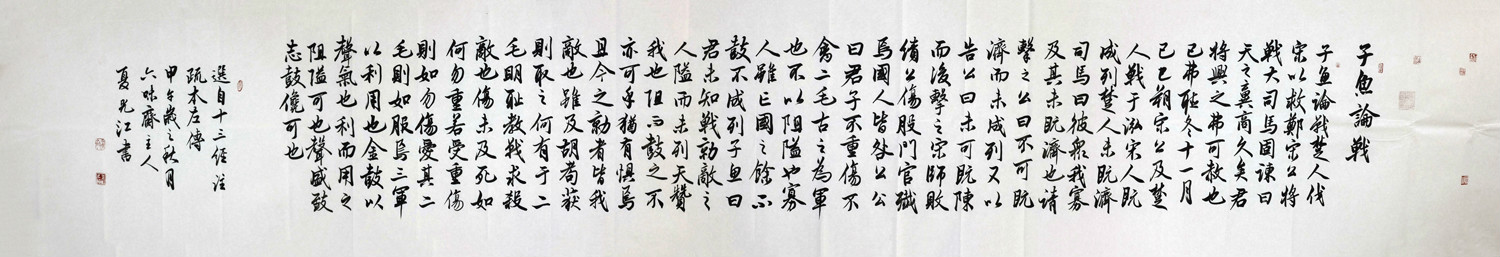 子魚論戰
子魚論戰楚人伐
宋以救鄭宋公將
戰大司馬固諫曰
天之棄商久矣君
將興之弗可赦也
已弗聽冬十一月
己巳朔宋公及楚
人戰于泓宋人既
成列楚人未既濟
司馬曰彼眾我寡
及其未既濟也請
擊之公曰不可既
濟而未成列又以
告公曰未可既陳
而後擊之宋師敗
績公傷股門官殲
焉國人皆咎公公
曰君子不重傷不
禽二毛古之為軍
也不以阻隘也寡
人雖亡國之餘不
鼓不成列子魚曰
君未知戰勍敵之
人隘而未列天贊
我也阻而鼓之不
亦可乎猶有懼焉
且今之勍者皆我
敵也雖及胡耇獲
則取之何有于二
毛明恥教戰求殺
敵也傷未及死如
何勿重若受重傷
則如勿傷愛其二
毛則如服焉三軍
以利用也金鼓以
聲氣也利而用之
阻隘可也聲盛致
志鼓儳可也
選自十三經注
疏本左傳
甲午歲之秋月
六味齋主人
夏江書